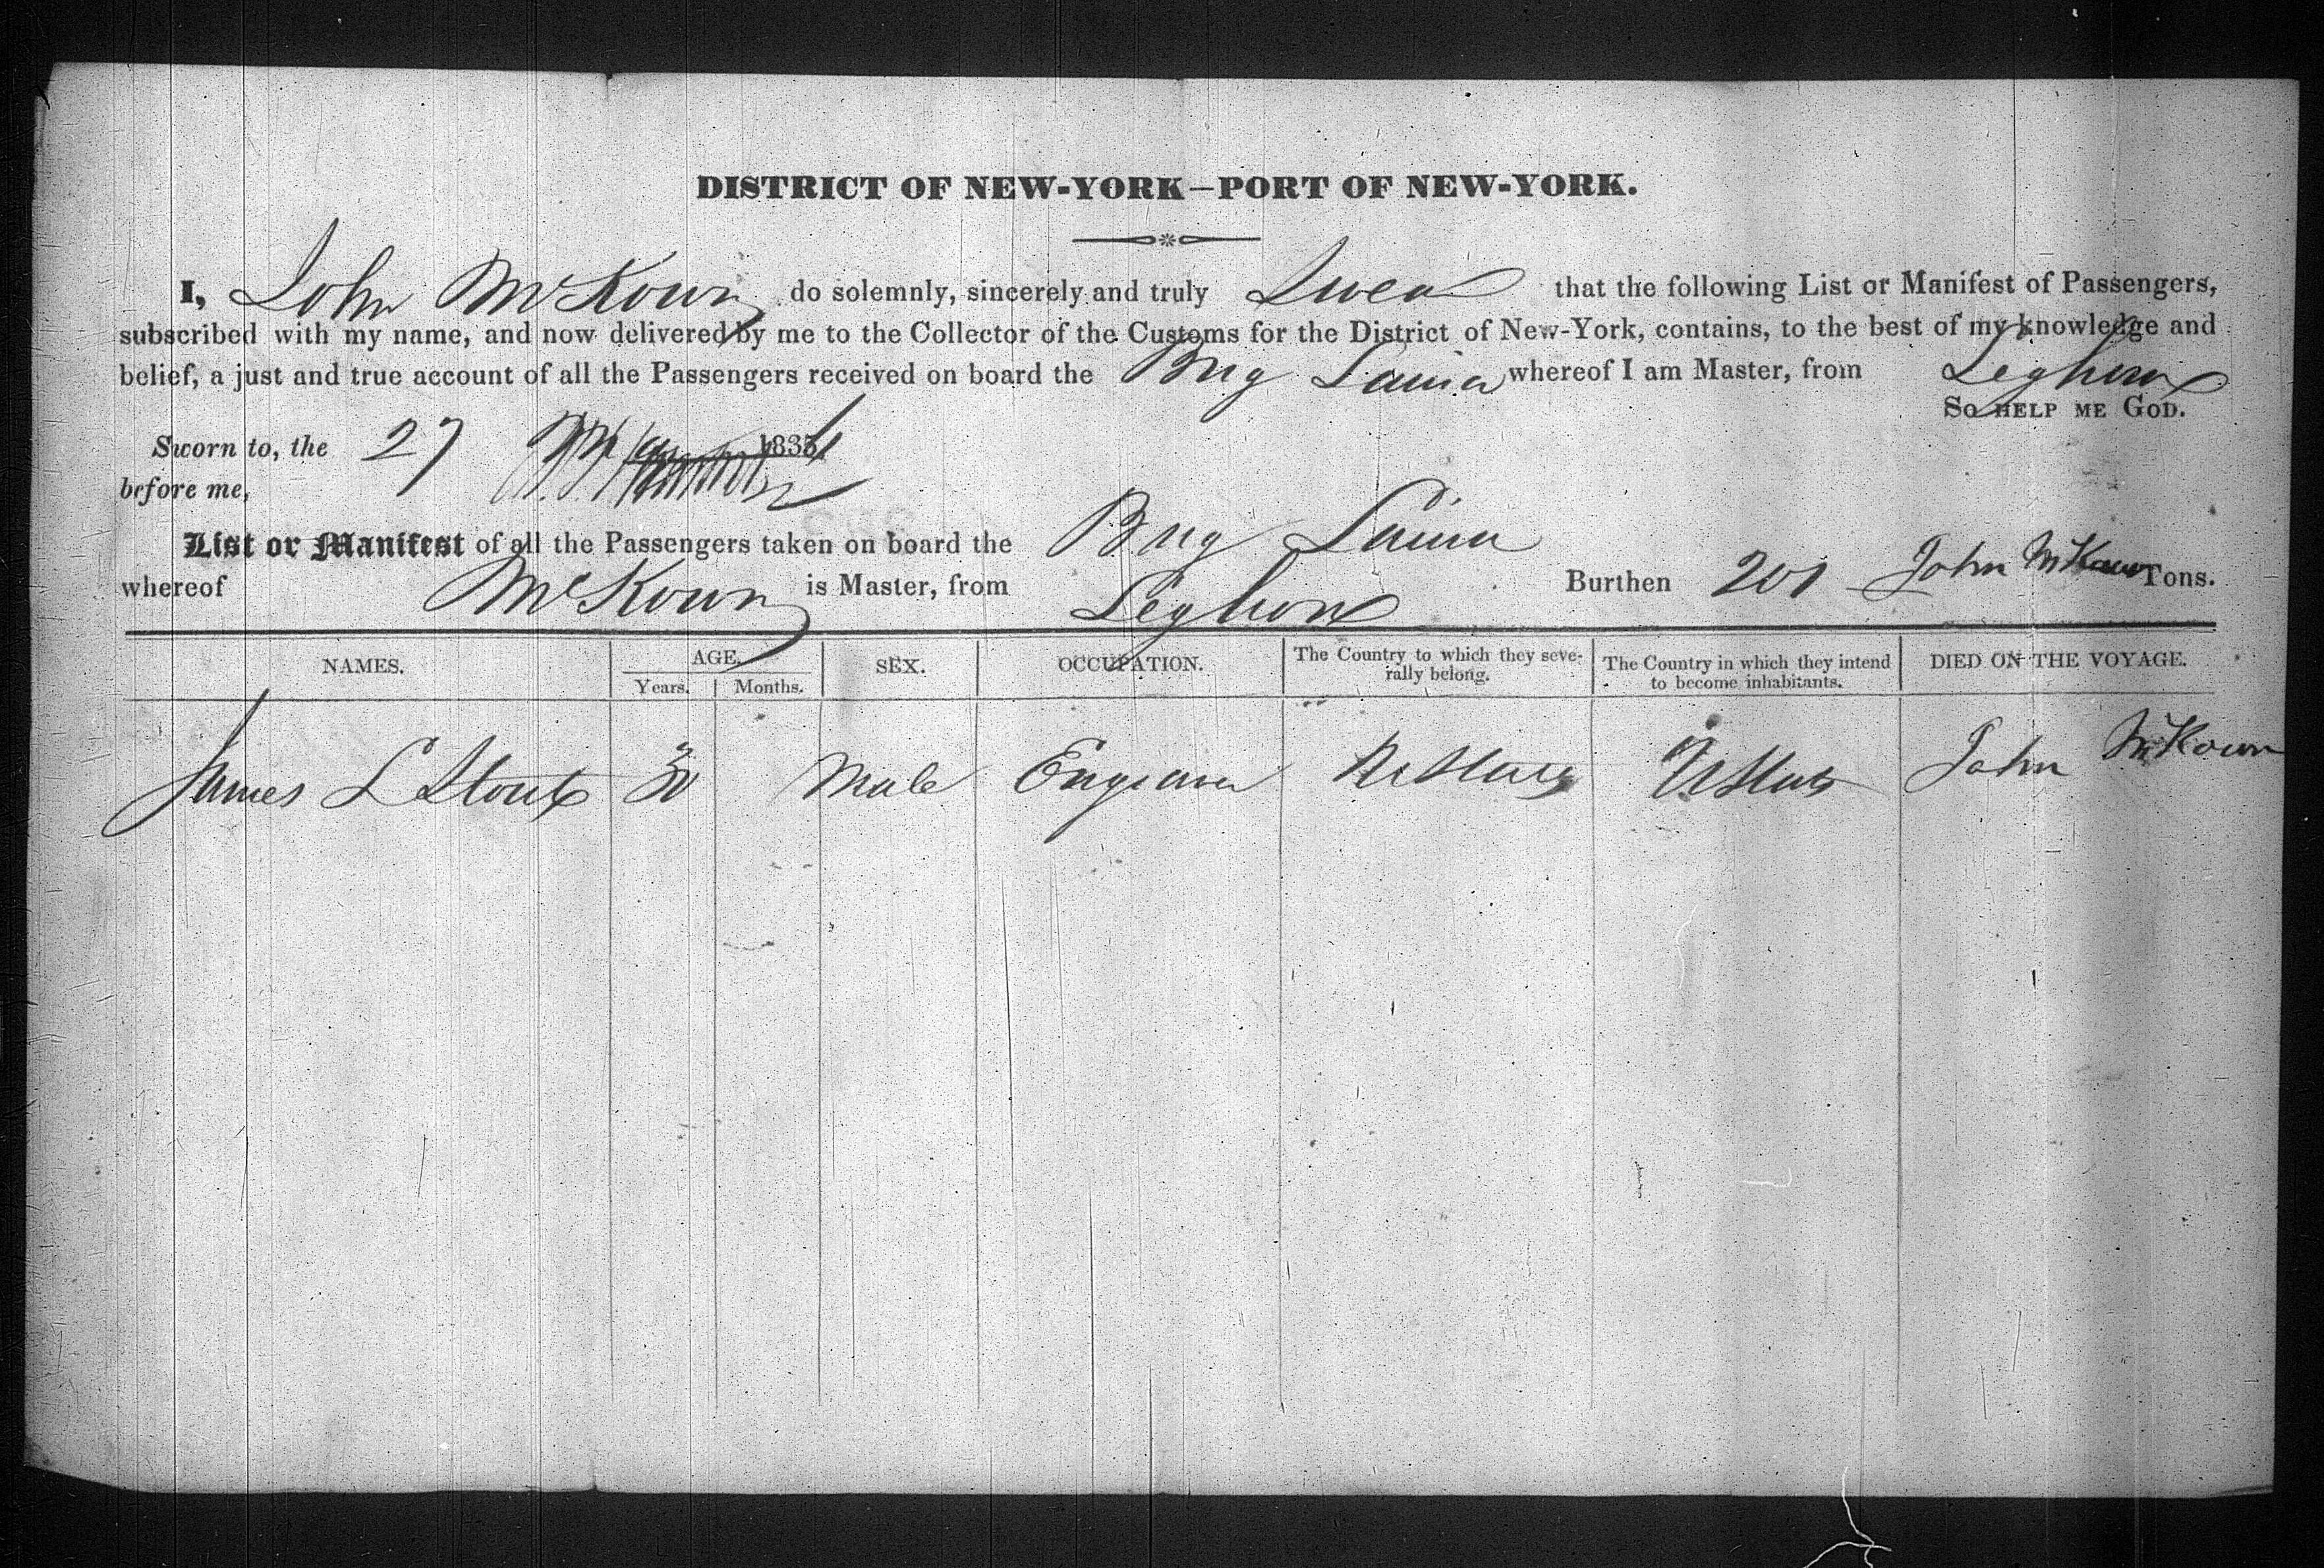 DISTRICT OF NEW-YORK—PORT OF NEW-YORK.
I, John McKown do solemnly, sincerely and truly Swear that the following List or Manifest of Passengers,
subscribed with my name, and now delivered by me to the Collector of the Customs for the District of New-York, contains, to the best of my knowledge and
belief, a just and true account of all the Passengers received on board the Brig whereof I am Master, from Leghorn
SO HELP ME GOD.
Sworn to, the 27 May 183
before me,
List or Manifest of all the Passengers taken on board the Brig
whereof McKown is Master, from Leghorn Burthen 201 John McKown Tons.
NAMES. AGE. SEX. OCCUPATION. The Country to which they seve- The Country in which they intend DIED ON THE VOYAGE.
Years. Months. rally belong. to become inhabitants.
James L Stout 30 Male Engraver U States U States John McKown